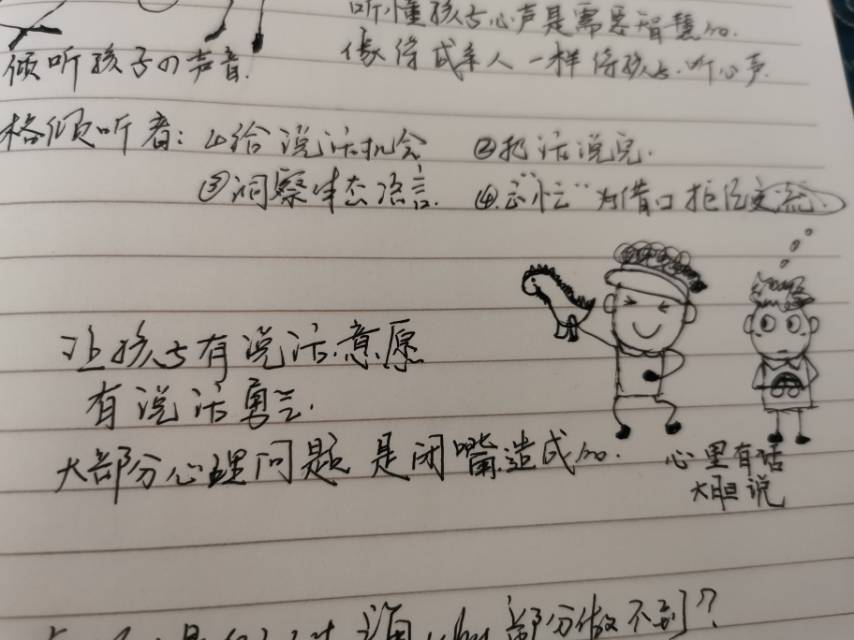 听懂孩子心声是需要智慧的.
倾听孩子の声音.
像待成年人一样待孩子.听心声
格倾听者:①给说话机会 ②把话说完.
③洞察体态语言. ④忌"忙"为借口拒绝交流.
让孩子有说话意愿
有说话勇气.
大部分心理问题是闭嘴造成的.
心里有话
大胆说
部分做不到?